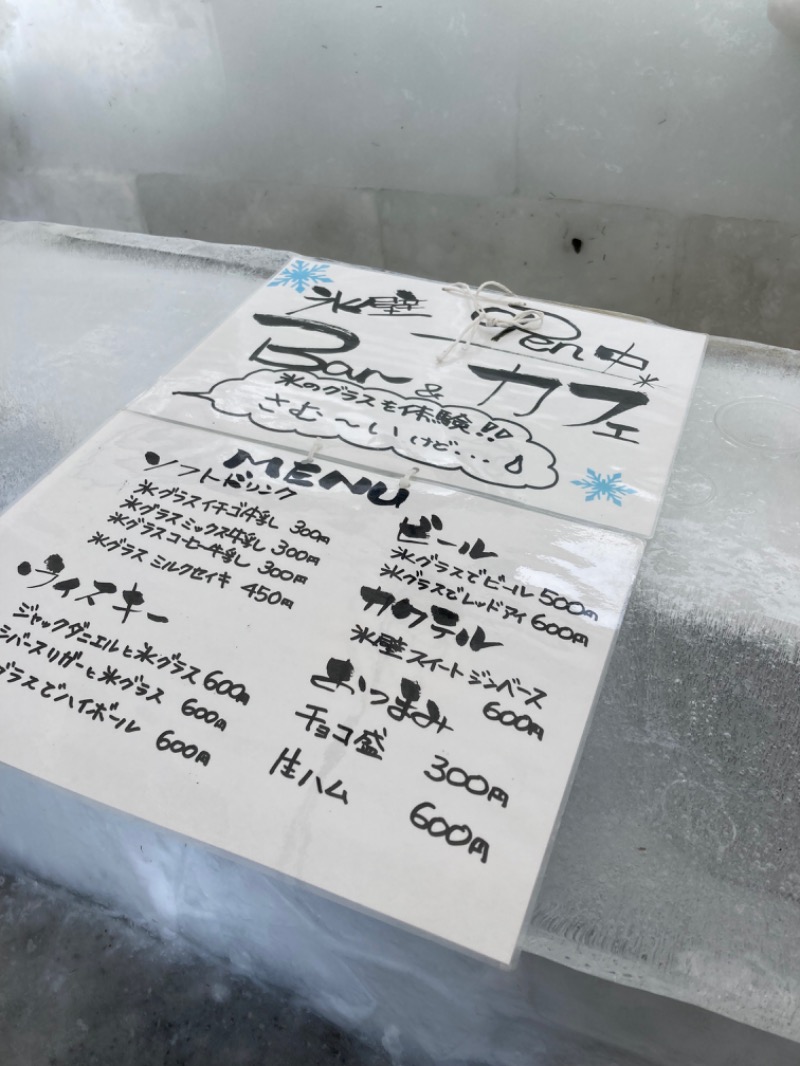 氷壁 Open中
Bar & カフェ
氷のグラスを体験!!
さむ〜いけど・・・
MENU
ソフトドリンク
氷グラスイチゴ牛乳 300円
氷グラスミックス牛乳 300円
氷グラスコーヒー牛乳 300円
氷グラス ミルクセイキ 450円
ウィスキー
ジャックダニエルと氷グラス 600円
シバースリガーと氷グラス 600円
グラスでハイボール 600円
ビール
氷グラスでビール 500円
氷グラスでレッドアイ 600円
カクテル
氷壁スイートジンバース 600円
おつまみ
チョコ盛 300円
生ハム 600円